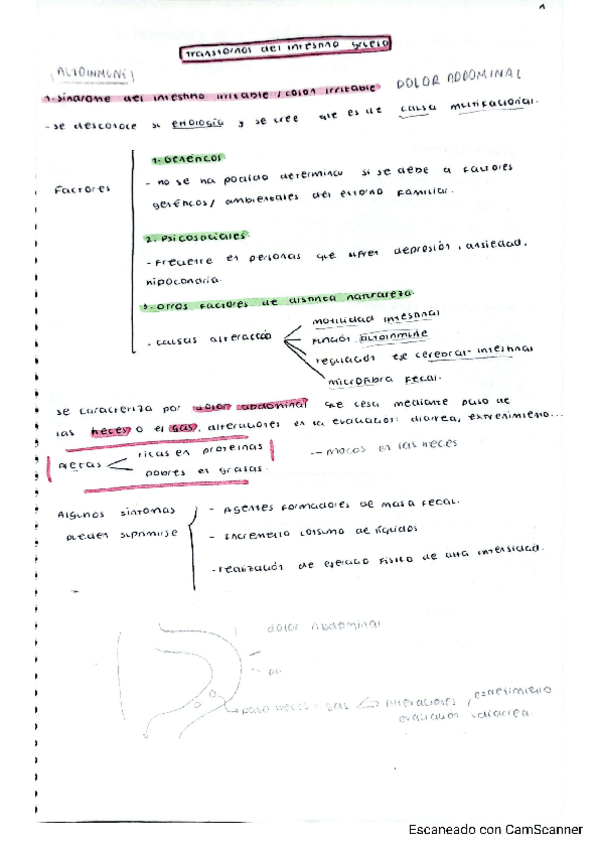 1
Transtornos del intestino grueso
(AUTOINMUNE)
1. Sindrome del intestino irritable / colon irritable DOLOR ABDOMINAL
- se desconoce su etiología y se cree que es de causa multifactorial.
Factores
1. Genéticos
- no se ha podido determinar si se debe a factores
genéticos / ambientales del entorno familiar.
2. Psicosociales.
- Frecuente en personas que sufren depresión, ansiedad,
hipocondría.
3. Otros factores de distinta naturaleza.
. causas alteración
motilidad intestinal
función autoinmune
regulación eje cerebral-intestinal
microflora fecal.
se caracteriza por dolor abdominal que cesa mediante paso de
las heces o el gas, alteraciones en la evacuación: diarrea, extreñimiento...
Dietas
ricas en proteinas
pobres en grasas.
-- mocos en las heces
Algunos sintomas
pueden suprimirse
- Agentes formadores de masa fecal.
- Incremento consumo de líquidos
- realización de ejercicio físico de alta intensidad.
dolor Abdominal
paso heces gas alteraciones, extreñimiento
evacuación diarrea
Escaneado con CamScanner